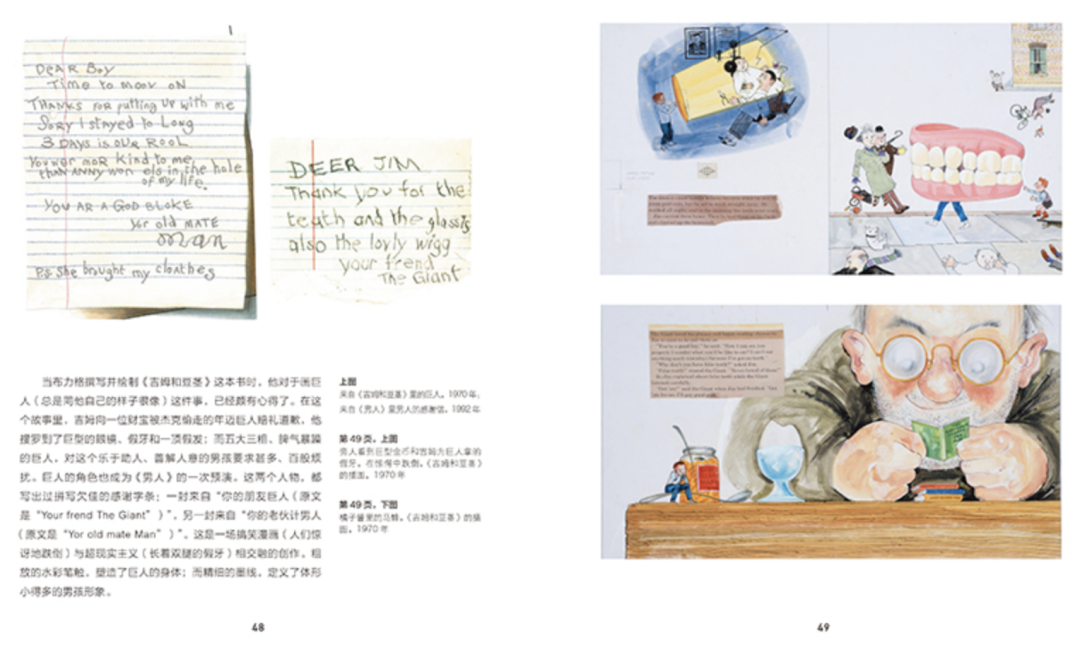 1
DEAR BOY
Time to moov oN
THANKS FOR putting UP with me
Sory I stayed to Long
3 DAYS is OUR ROOL
You wer moR Kind to me
than ANNY won els in the hole
of my life.
YOU AR A GOD BLOKE
Yor old MATE
man
P.S She brought my cloathes
DEER JIM
Thank you for the
teath and the glassis
also the lovly wigg
your frend
The Giant
当布力格撰写并绘制《吉姆和豆茎》这本书时，他对于画巨
人（总是同他自己的样子很像）这件事，已经颇有心得了。在这
个故事里，吉姆向一位财宝被杰克偷走的年迈巨人赔礼道歉，他
搜罗到了巨型的眼镜、假牙和一顶假发；而五大三粗、脾气暴躁
的巨人，对这个乐于助人、善解人意的男孩要求甚多，百般烦
扰。巨人的角色也成为《男人》的一次预演。这两个人物，都
写出过拼写欠佳的感谢字条：一封来自“你的朋友巨人（原文
是“Your frend The Giant”）”，另一封来自“你的老伙计男人
（原文是“Yor old mate Man”）”。这是一场搞笑漫画（人们惊
讶地跌倒）与超现实主义（长着双腿的假牙）相交融的创作。粗
放的水彩笔触，塑造了巨人的身体；而精细的墨线，定义了体形
小得多的男孩形象。
上图
来自《吉姆和豆茎》里的巨人。1970年；
来自《男人》里男人的感谢信。1992年
第49页，上图
旁人看到巨型金币和吉姆为巨人拿的
假牙，在惊愕中跌倒。《吉姆和豆茎》
的插图。1970年
第49页，下图
橘子酱里的马蜂。《吉姆和豆茎》的插
图。1970年
48
“You're a good boy,” he said. “Now I can see you
“Why don't you have false teeth?” asked Jim.
“False teeth?” roared the Giant. “Never heard of them.”
So Jim explained about false teeth while the Giant
listened carefully.
49